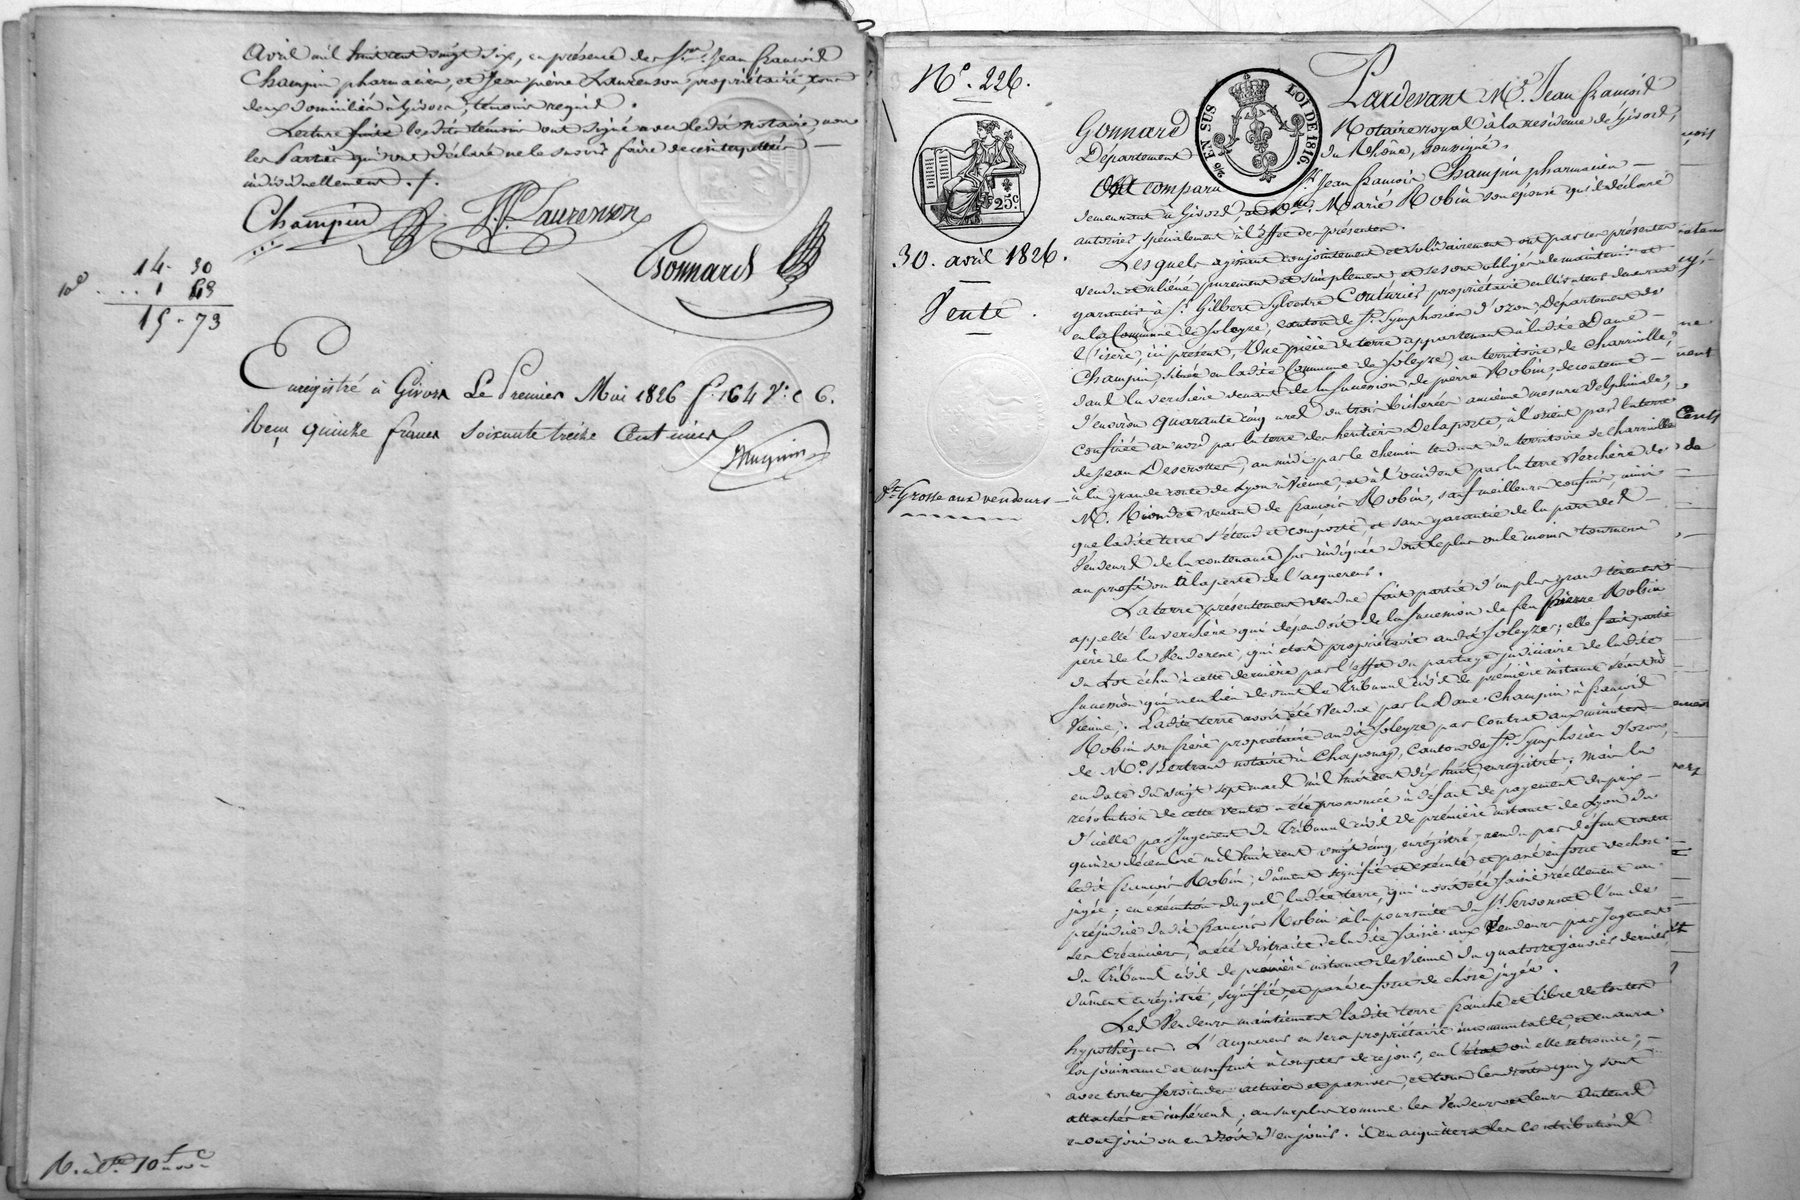 Avril mil huit cent vingt six, en présence des Srs. Jean François
Champin pharmacien, et Jean pierre Laurenson propriétaire, tous
deux domiciliés à Givors, témoins requis.
Lecture faite lesdits témoins ont signé avec ledit notaire, non
les Parties qui ont déclaré ne le savoir faire de ce interpellées
individuellement.
Champin
J.P. Laurenson
Gonnard
14. 30
10e ... 1 43
15 - 73
Enrégistré à Givors Le Premier Mai 1826 f. 164 V. c 6.
Reçu quinze francs soixante treize Centimes
N° 226.
25c
30. avril 1826.
Vente
fte Grosse aux vendeurs
¼ EN SUS
LOI DE 1816.
Pardevant Me. Jean François
Gonnard Notaire royal à la résidence de Givors,
Département du Rhône, soussigné,
Ont comparu Sr. Jean François Champin pharmacien
demeurant à Givors, et Dme. Marie Robin son épouse qu'il déclare
autoriser spécialement à l'effet des présentes.
Lesquels agissant conjointement et solidairement ont par ces présentes
vendu et aliéné purement et simplement et se sont obligés de maintenir et
garantir à Sr. Gilbert Sylvestre Couturier propriétaire cultivateur demeurant
en la Commune de Soleyze, canton de St. Symphorien d'ozon, Département de
l'isère, ici présent, Une pièce de terre appartenant à ladite Dame
Champin, située en ladite Commune de Soleyze, au territoire de Charrivolle,
dans la verchère venant de la succession de pierre Robin, de contenue
d'environ quarante cinq ares ou trois bicherées ancienne mesure delphinale,
confinée au nord par la terre des héritiers Delaporte, à l'orient par la terre
de Jean Descrottes, au midi par le chemin tendant du territoire de Charrivolle
à la grande route de Lyon à Vienne, et à l'occident par la terre verchère de
Mr. Riondet venant de françois Robin, sauf meilleurs confins, ainsi
que ladite terre s'étend et comporte, et sans garantie de la part des
Vendeurs de la contenance sus indiquée dont le plus ou le moins tournera
au profit ou à la perte de l'acquéreur.
La terre présentement vendue fait partie d'un plus grand tènement
appellé la verchère qui dépendoit de la succession de feu pierre Robin
père de la Venderesse, qui étoit propriétaire audit Soleyze; elle fait partie
du Lot échu à cette dernière par l'effet du partage judiciaire de ladite
succession qui a eu lieu devant le Tribunal civil de première instance séant à
Vienne. Ladite terre avoit été vendue par la Dame Champin à françois
Robin son frère propriétaire audit Soleyze par Contrat aux minutes
de Me. Bertrand notaire à Chaponay, Canton de St. Symphorien d'ozon,
en date du vingt sept mars mil huit cent dix huit, enregistré; Mais la
résolution de cette vente a été prononcée à défaut de payement du prix
d'icelle par Jugement du Tribunal civil de première instance de Lyon du
quinze décembre mil huit cent vingt cinq, enrégistré, rendu par défaut contre
ledit françois Robin, dument signifié et exécuté et passé en force de chose
jugée; en exécution duquel ladite terre, qui avoit été saisie réellement au
préjudice dudit françois Robin à la poursuite du Sr. Servonnat l'un de
ses Créanciers, a été distraite de ladite saisie aux Vendeurs par Jugement
du Tribunal civil de première instance de Vienne du quatorze janvier dernier,
dûment enrégistré, signifié, et passé en force de chose jugée.
Les Vendeurs maintiennent ladite terre franche et libre de toutes
hypothèques. L'acquéreur en sera propriétaire incommutable, et en aura
la jouissance et usufruit à compter de ce jour, en l'état où elle se trouve,
avec toutes servitudes actives et passives, et tous les droits qui y sont
attachés et inhérens, au surplus comme les Vendeurs et leurs auteurs
en ont joui ou eu droit d'en jouir. il en acquittera les contributions